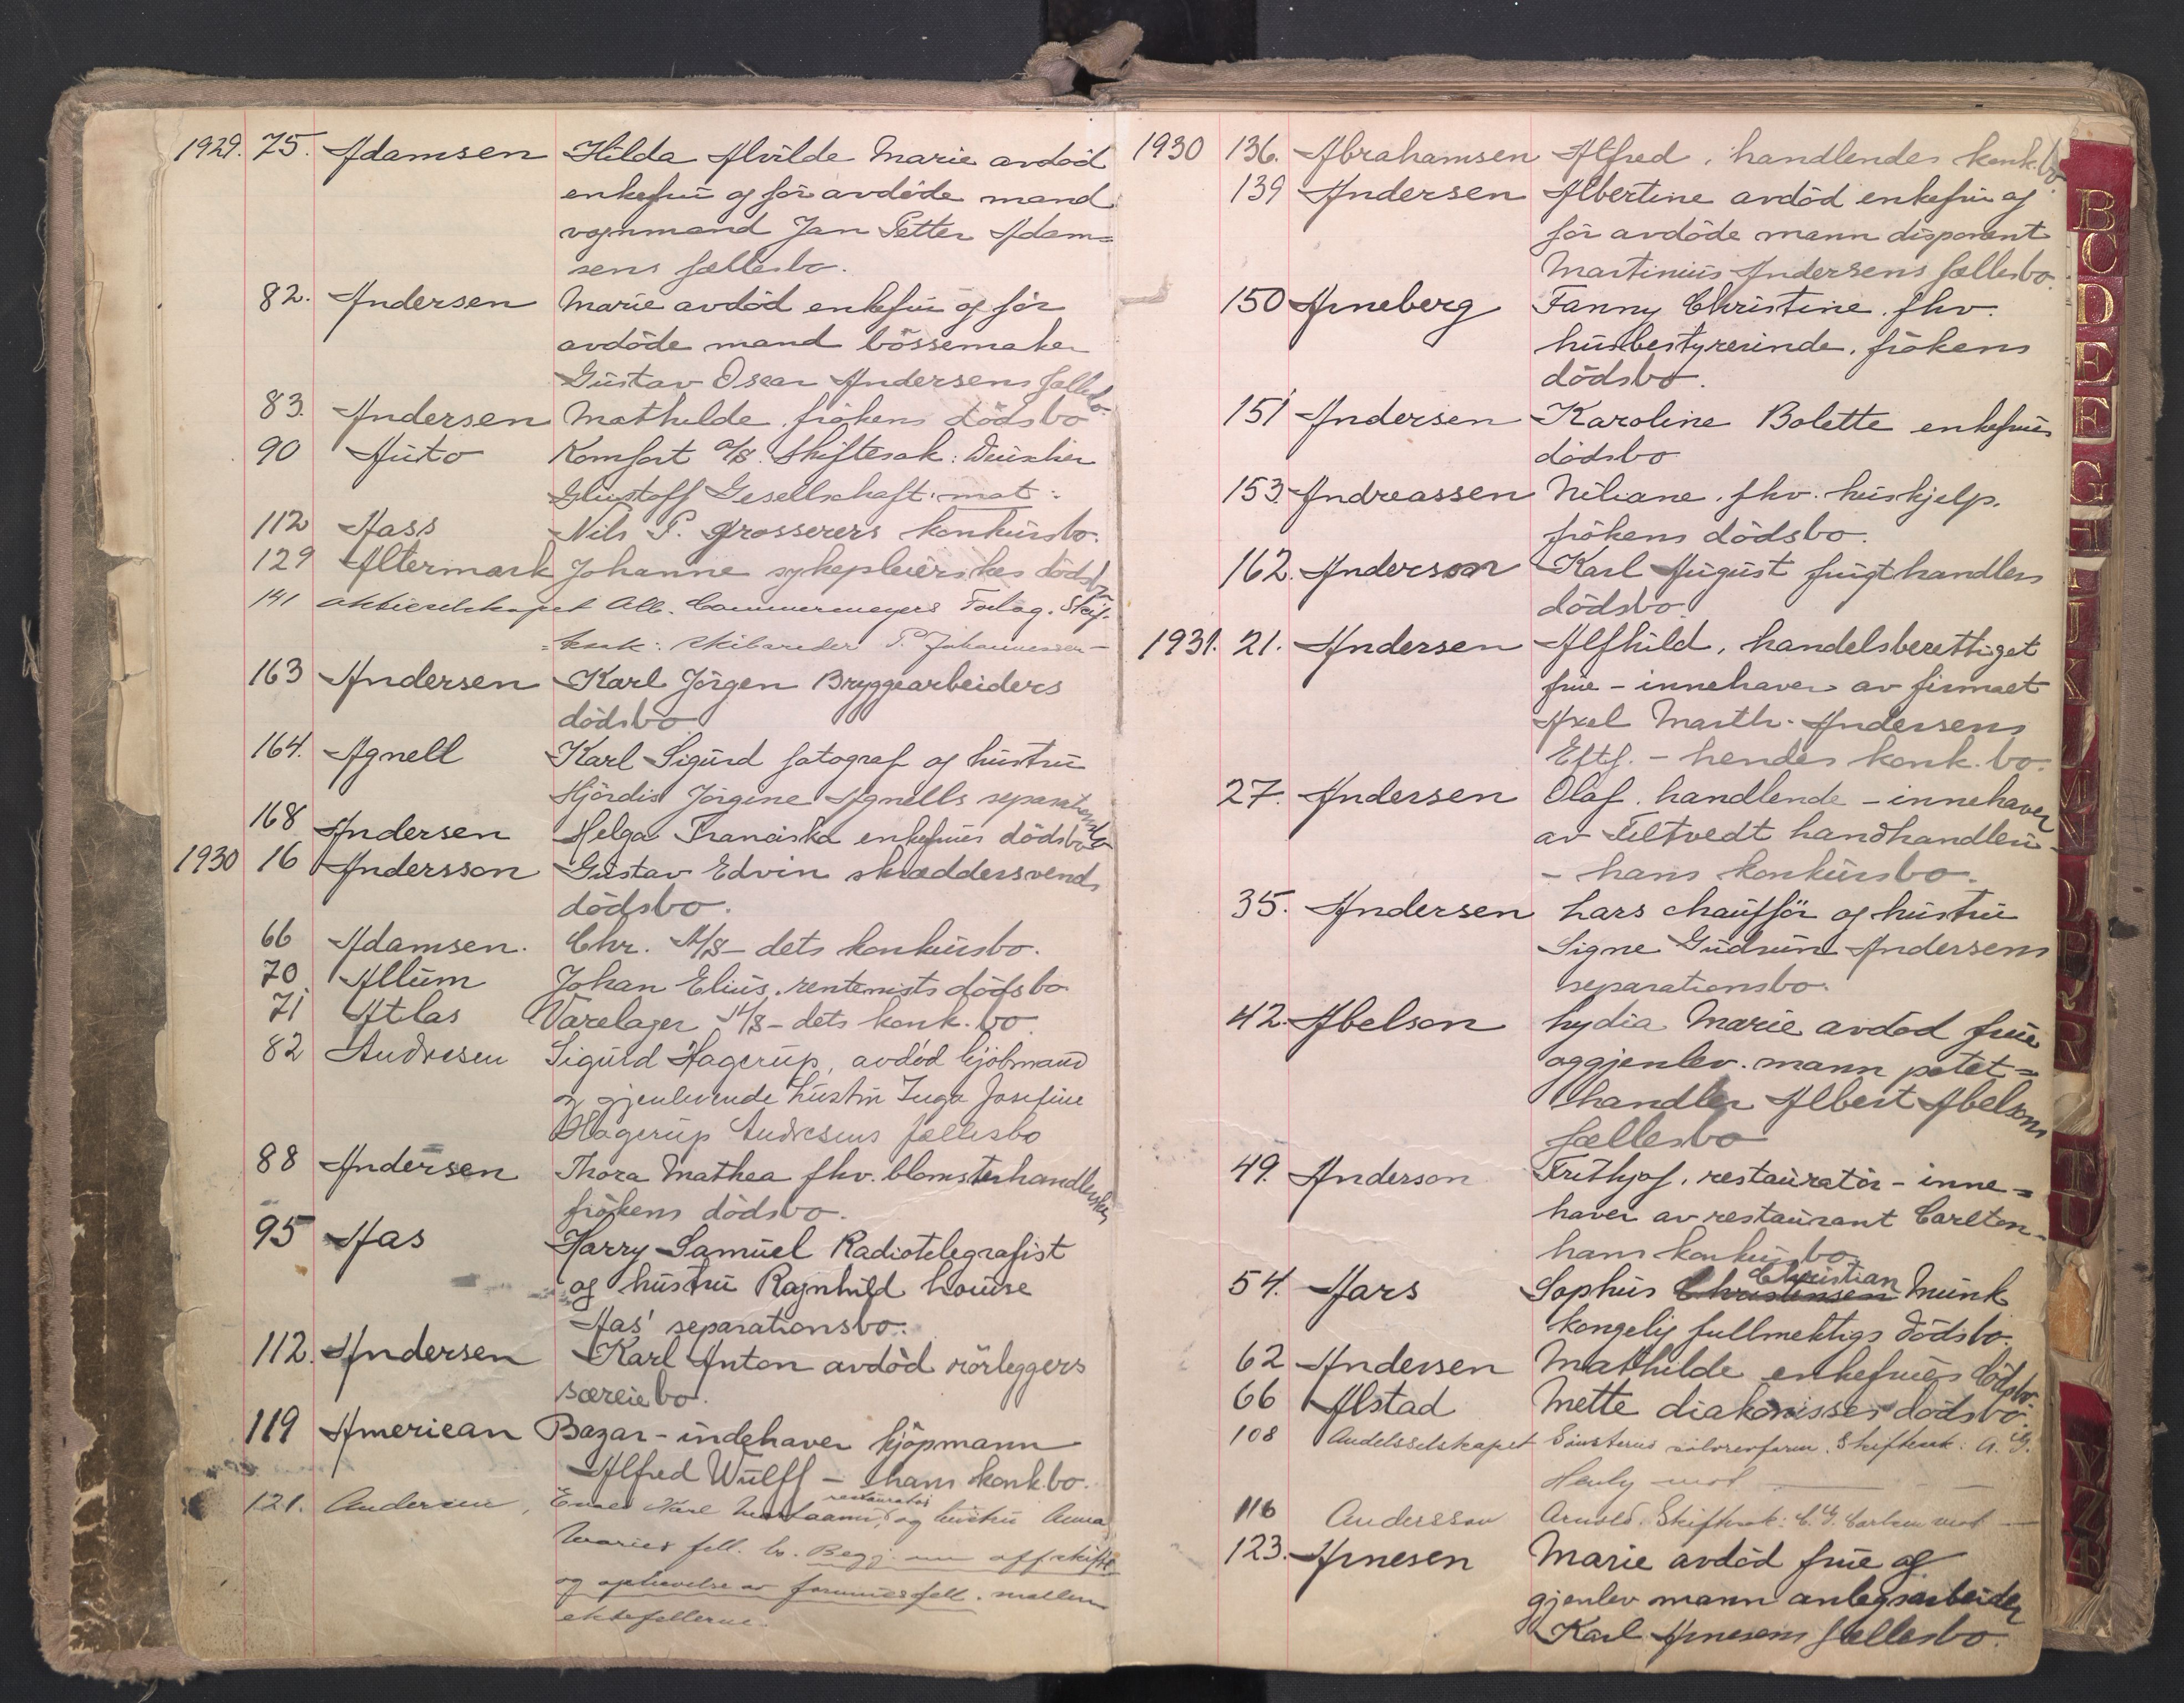 1929. 75. Adamsen Hilda Alvilde Marie avdöd
enkefru og før avdöde mand
vognmand Jan Petter Adam=
sens fællesbo.
82. Andersen Marie avdöd enkefru og før
avdöde mand bössemaker
Gustav Oscar Andersens fællesbo
83. Andersen Mathilde, frökens dödsbo
90 Auto Komfort A/S. Skiftesak: Deutscher
Gesellschaft. mot :
112 Aass Nils P. grosserers konkursbo.
129 Altermark Johanne sykepleierskes dödsbo
141 Aktieselskapet Alb. Cammermeyers Forlag. Skif-
=tesak: skibsreder P. Johannessen —
163 Andersen Karl Jörgen Bryggearbeiders
dödsbo
164. Agnell Karl Sigurd fotograf og hustru
Hjördis Jörgine Agnells separationsbo
168 Andersen Helga Franciska enkefrues dödsbo
1930 16 Andersson Gustav Edvin skræddersvends
dödsbo.
66 Adamsen. Chr. A/S - dets konkursbo.
70 Allum Johan Elius. rentenists dödsbo
71 Atlas Varelager A/S - dets konk. bo.
82 Andresen Sigurd Hagerup, avdöd kjöbmand
og gjenlevende hustru Inga Josefine
Hagerup Andresens fællesbo
88 Andersen Thora Mathea fhv. blomsterhandlerskes
frökens dödsbo.
95 Aas Harry Samuel Radiotelegrafist
og hustru Ragnhild Louise
Aas' separationsbo.
112. Andersen Karl Anton avdöd rörleggers
særeiebo.
119 American Bazar - indehaver kjöpmann
Alfred Wulff - hans konk.bo.
121. Andersen, Karl restauratör og hustru Anna
Maries fell. bo. Begj. om offskifte
og ophevelse av formuesfell. mellem
ektefellerne.
1930 136. Abrahamsen Alfred, handlendes konk.bo.
139 Andersen Albertine avdöd enkefru og
før avdöde mann disponent
Martinius Andersens fællesbo.
150 Arneberg Fanny Christine. fhv.
husbestyrerinde, frökens
dödsbo.
151 Andersen Karoline Bolette enkefrues
dödsbo
153. Andreassen Niliane. fhv. huskjelp.
frökens dödsbo.
162. Anderson Karl August frugthandlers
dödsbo.
1931. 21. Andersen Alfhild, handelsberettiget
frue - innehaver av firmaet
Axel Marth. Andersens
Eftf. - hendes konk. bo.
27. Andersen Olaf. handlende - innehaver
av Filtvedt landhandleri -
- hans konkursbo.
35. Andersen Lars chaufför og hustru
Signe Gudrun Andersens
separationsbo.
42. Abelson Lydia Marie avdöd frue
og gjenlev. mann potet=
handler Albert Abelsons
fællesbo
49. Anderson Frithjof, restauratör - inne=
haver av restaurant Carlton -
hans konkursbo.
54. Aars Sophus Christensen Christian Munk
kongelig fullmektigs dödsbo.
62 Andersen Mathilde enkefrues dödsbo.
66 Alstad Mette diakonisses dödsbo.
108 Andelsselskapet sölvrevfarm. Skiftesak: A. G.
Henly mot —
116 Andersson Arnold. Skiftesak: C. G. Carlsen mot —
123. Arnesen Marie avdöd frue og
gjenlev mann anlegsarbeider
Karl Arnesens fællesbo.
B
C
D
E
F
G
H
I
J
K
L
M
N
O
P
R
S
T
U
Y
Z
Æ